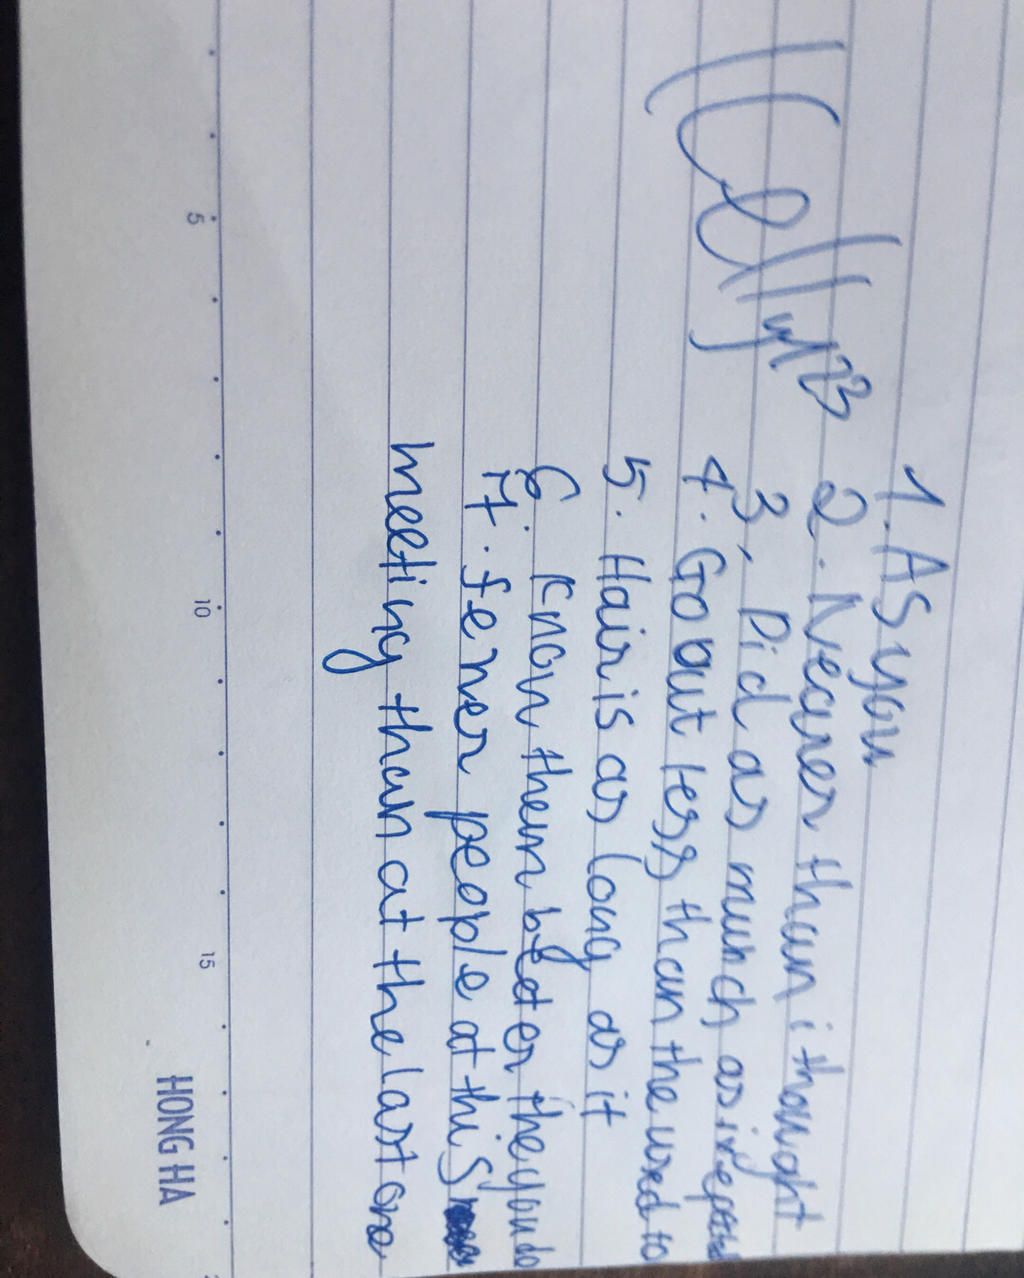 Kellyn23
1. As you
2. Nearer than i thought
3, Did as much as i
4. Go out less than the used to
5. Hair is as long as it
6. know them beter the you do
7. fener people at this
meeting than at the last one
5
10
15
HONG HA